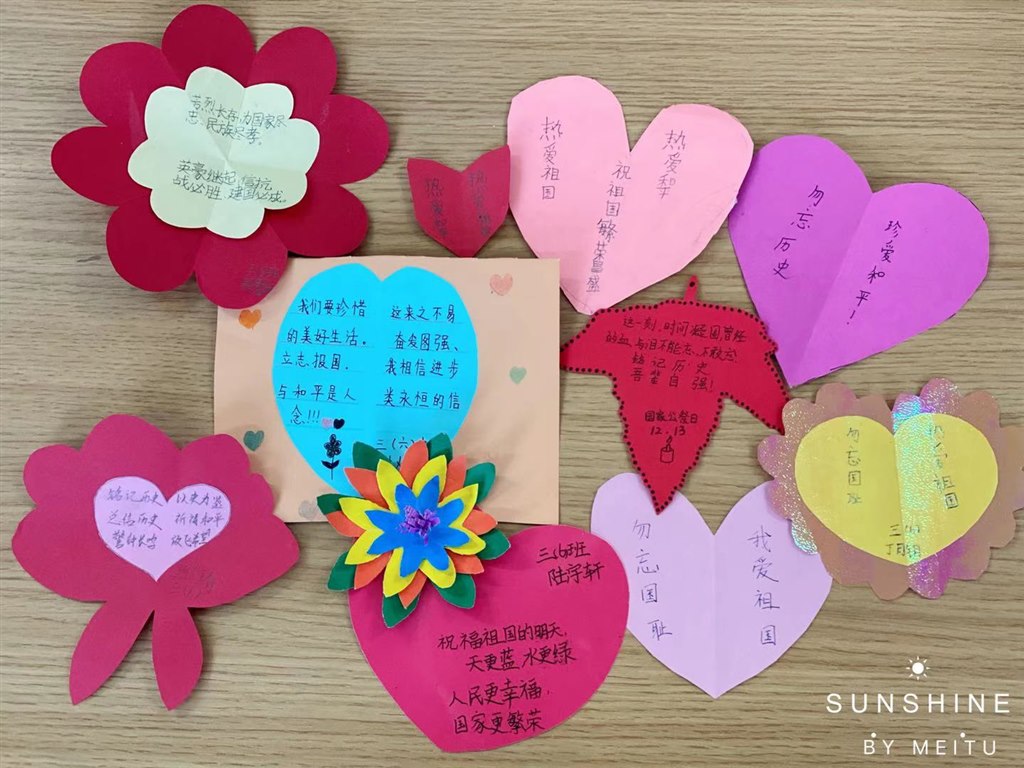 芳烈长存,为国家尽
忠、民族尽孝。
英豪继起,信抗
战必胜、建国必成。
热爱祖国
祝祖国繁荣昌盛
热爱和平
勿忘历史
珍爱和平!
我们要珍惜 这来之不易
的美好生活。 奋发图强、
立志报国。 我相信进步
与和平是人 类永恒的信
念!!!
三(六)
这一刻,时间凝固曾经
的血与泪不能忘、不敢忘
铭记历史
吾辈自强!
国家公祭日
12.13
勿忘国耻
祖国
三(6)
铭记历史 以史为鉴
还信历史 祈祷和平
警钟长鸣 放飞希望
三(6)班
陆宇轩
祝福祖国的明天,
天更蓝 水更绿
人民更幸福,
国家更繁荣
勿忘国耻
我爱祖国
SUNSHINE
BY MEITU